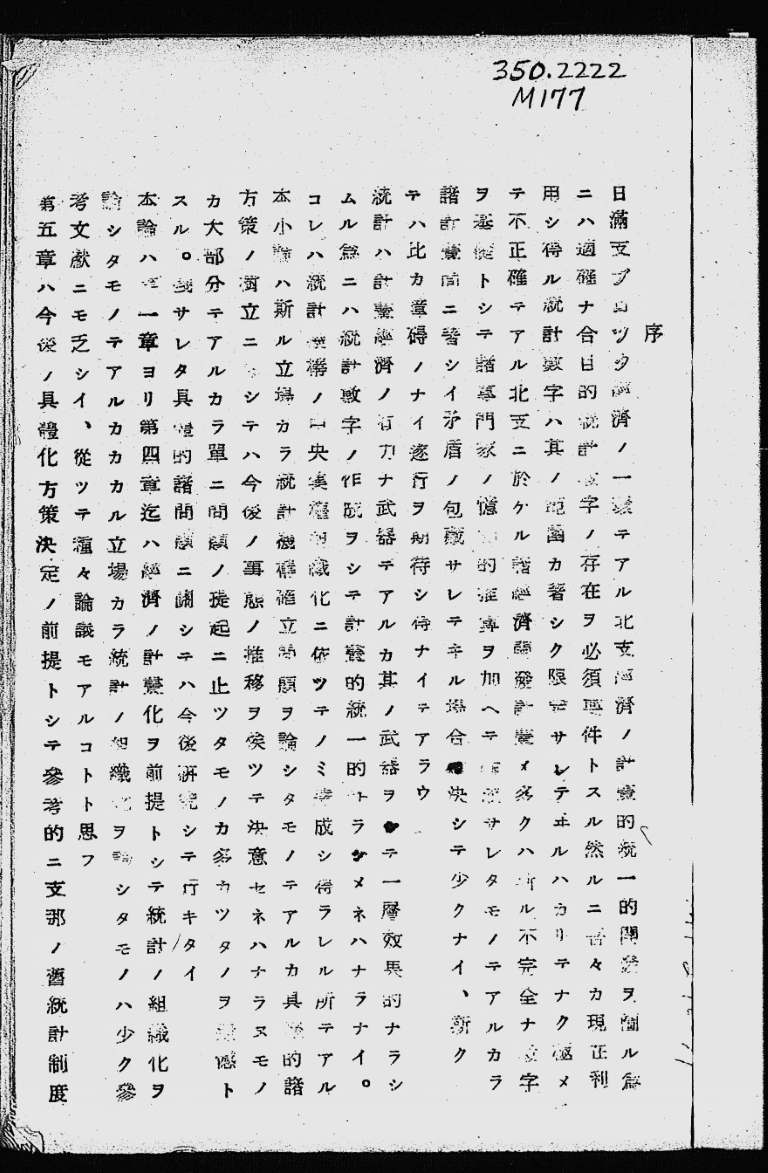 350.2222
M177
序
日滿支ブロツク經濟ノ一環テアル北支經濟ノ計畫的統一的開發ヲ圖ル爲
ニハ適確ナ合目的統計數字ノ存在ヲ必須要件トスル然ルニ吾々カ現在利
用シ得ル統計數字ハ其ノ範圍カ著シク限定サレテヰルハカリテナク極メ
テ不正確テアル北支ニ於ケル諸經濟開發計畫ノ多クハ斯ル不完全ナ數字
ヲ基礎トシテ諸專門家ノ憶 的推算ヲ加ヘテ サレタモノテアルカラ
諸計畫間ニ著シイ矛盾ノ包藏サレテヰル場合 決シテ少クナイ、斯ク
テハ比カ障碍ノナイ遂行ヲ期待シ得ナイテアラウ
統計ハ計畫經濟ノ有力ナ武器テアルカ其ノ武器ヲ テ一層效果的ナラシ
ムル爲ニハ統計數字ノ作成ヲシテ計畫的統一的ナラシメネハナラナイ。
コレハ統計機構ノ中央集權組織化ニ依ツテノミ達成シ得ラレル所テアル
本小論ハ斯ル立場カラ統計機構確立問題ヲ論シタモノテアルカ具體的諸
方策ノ樹立ニ シテハ今後ノ事態ノ推移ヲ俟ツテ決意セネハナラヌモノ
カ大部分テアルカラ單ニ問題ノ提起ニ止ツタモノカ多カツタノヲ遺憾ト
スル。殘サレタ具體的諸問題ニ關シテハ今後研究シテ行キタイ
本論ハ第一章ヨリ第四章迄ハ經濟ノ計畫化ヲ前提トシテ統計ノ組織化ヲ
論シタモノテアルカカカル立場カラ統計ノ組織化ヲ論シタモノハ少ク參
考文獻ニモ乏シイ、從ツテ種々論議モアルコトト思フ
第五章ハ今後ノ具體化方策決定ノ前提トシテ參考的ニ支那ノ舊統計制度